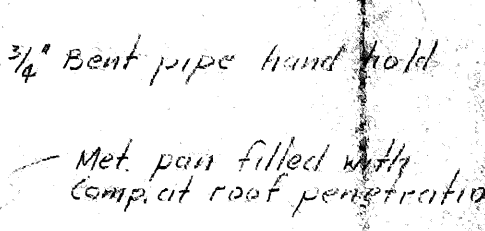 3/4" Bent pipe hand hold
Met. pan filled with
Comp. at roof penetratio